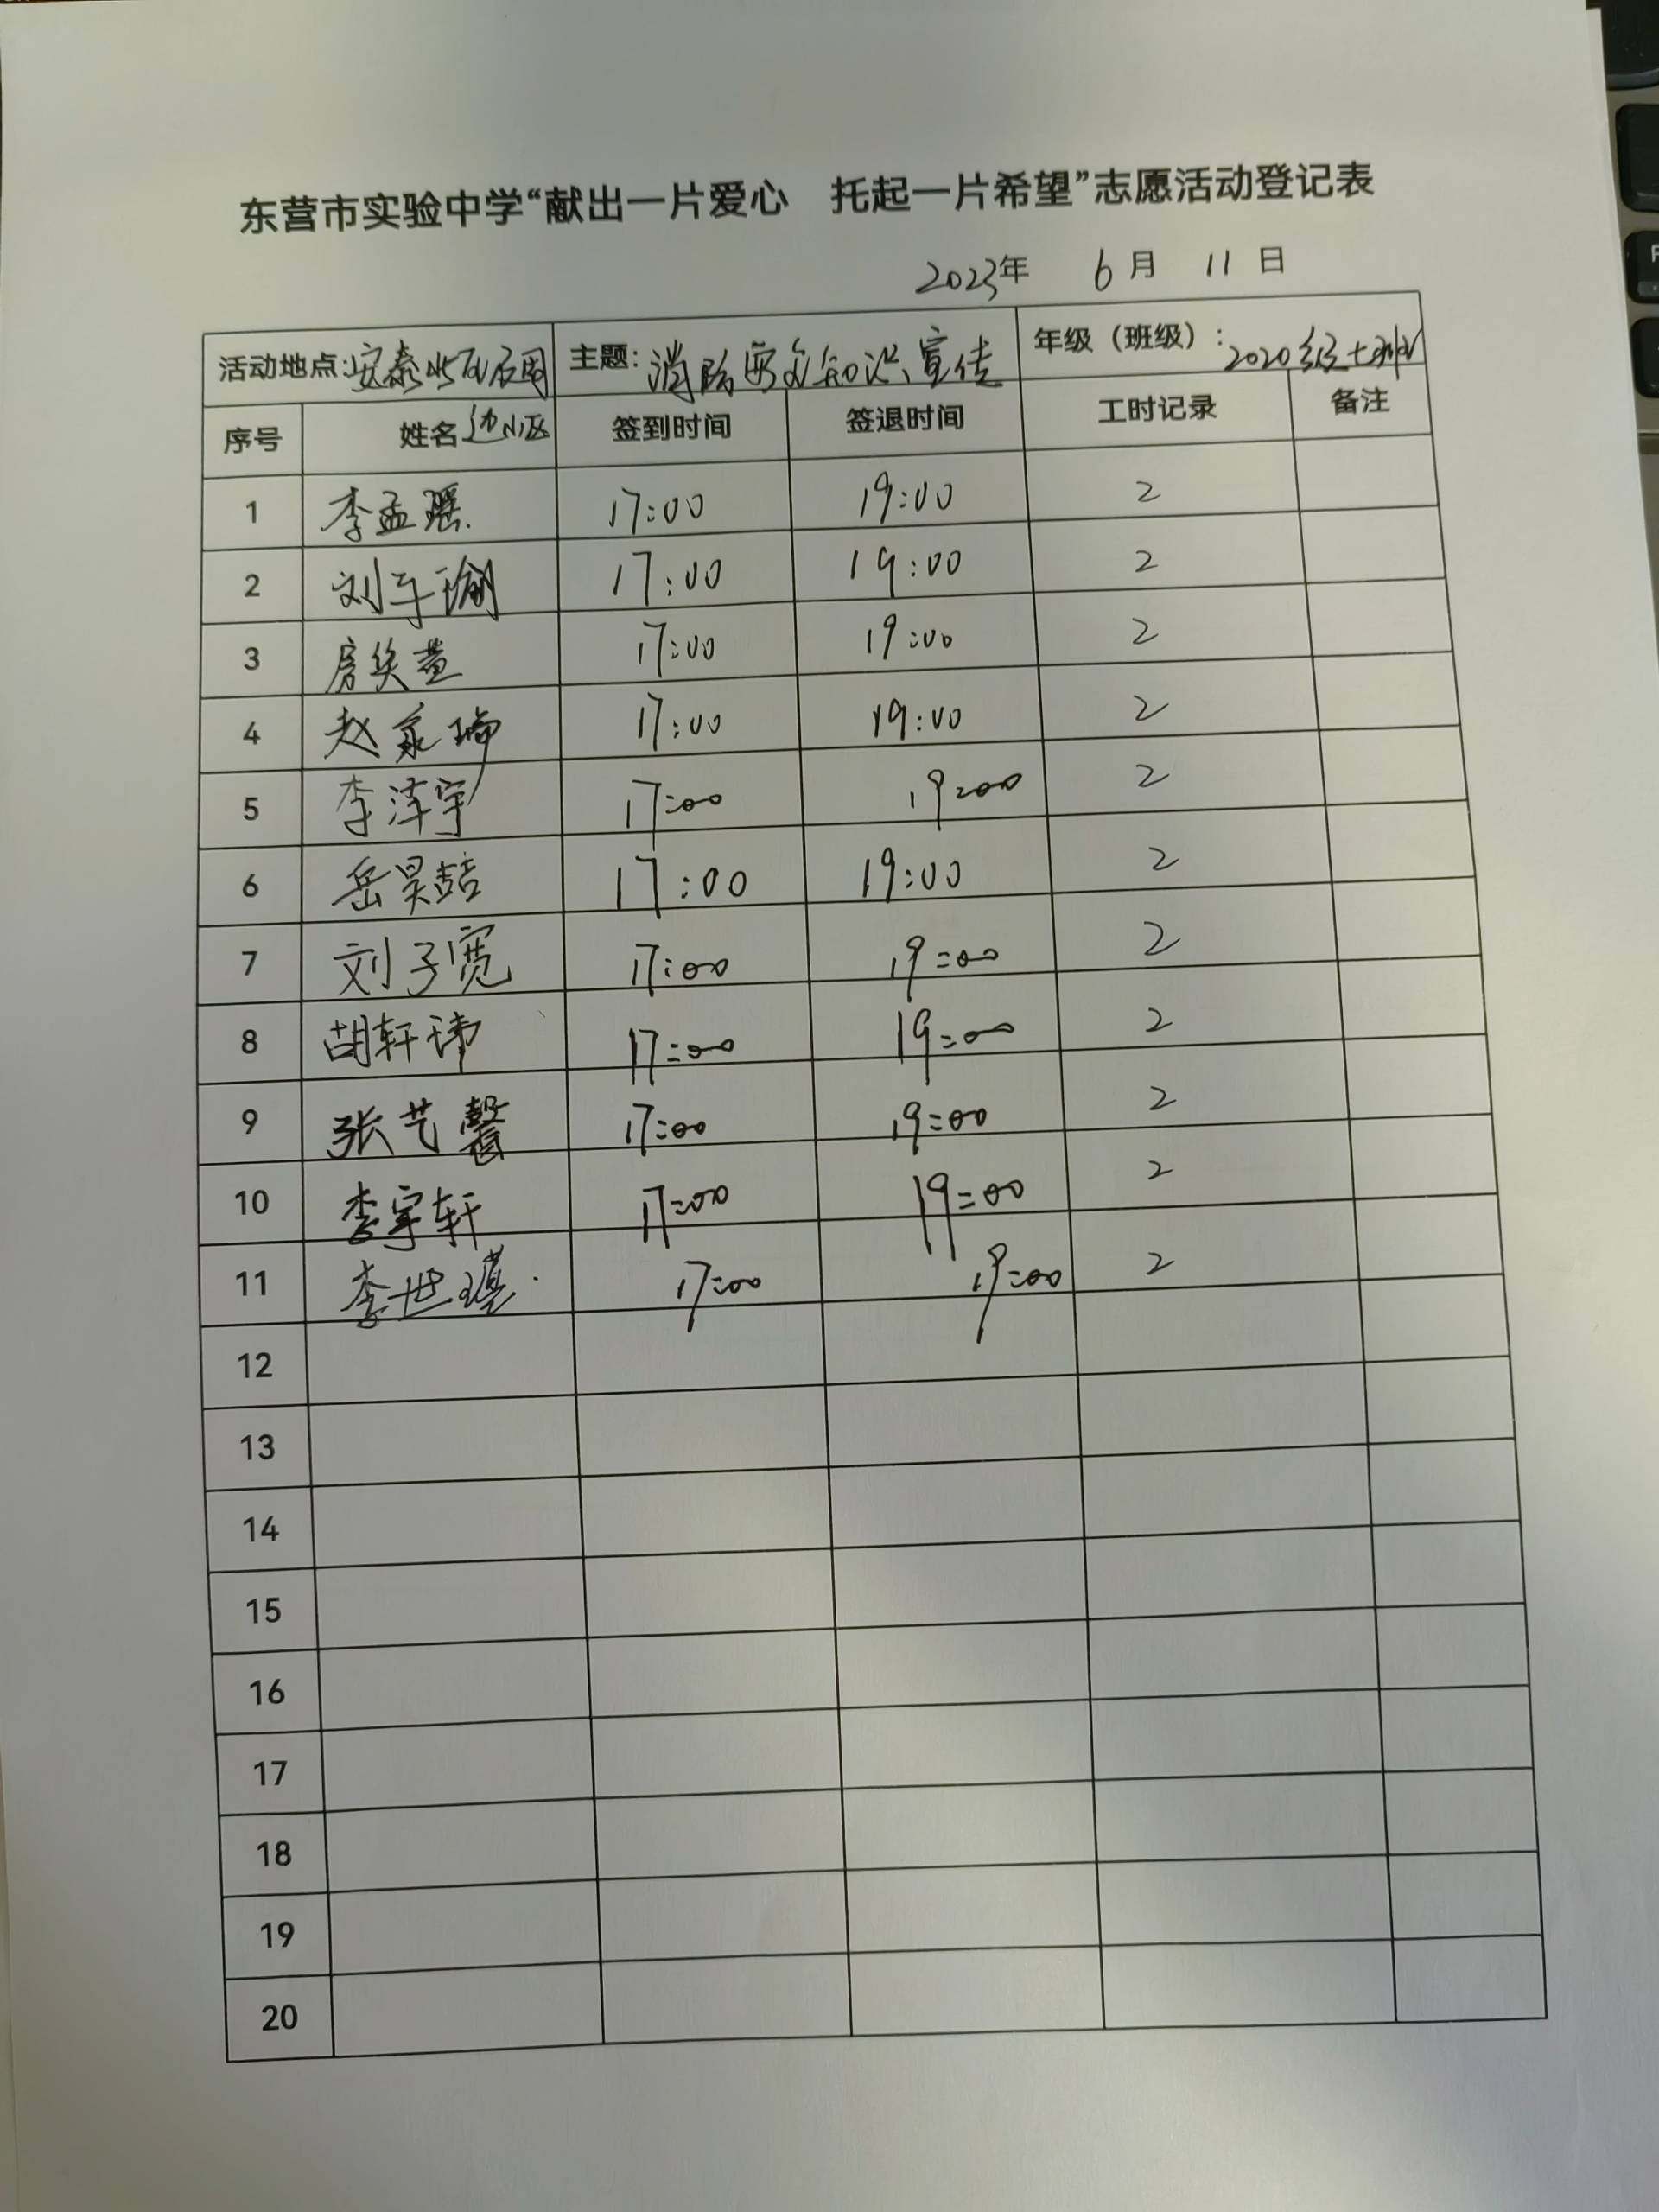 东营市实验中学“献出一片爱心 托起一片希望”志愿活动登记表
2023年 6月 11日
活动地点:安泰 周 主题: 消防安全知识宣传 年级（班级）: 2020级
边小区
序号 姓名 签到时间 签退时间 工时记录 备注
1 李孟瑶 17:00 19:00 2
2 刘子瑜 17:00 19:00 2
3 房 17:00 19:00 2
4 赵 瑞 17:00 19:00 2
5 李泽宇 17:00 19:00 2
6 岳昊喆 17:00 19:00 2
7 刘子宽 17:00 19:00 2
8 胡轩玮 17:00 19:00 2
9 张艺馨 17:00 19:00 2
10 李宇轩 17:00 19:00 2
11 李世瑾 17:00 19:00 2
12
13
14
15
16
17
18
19
20